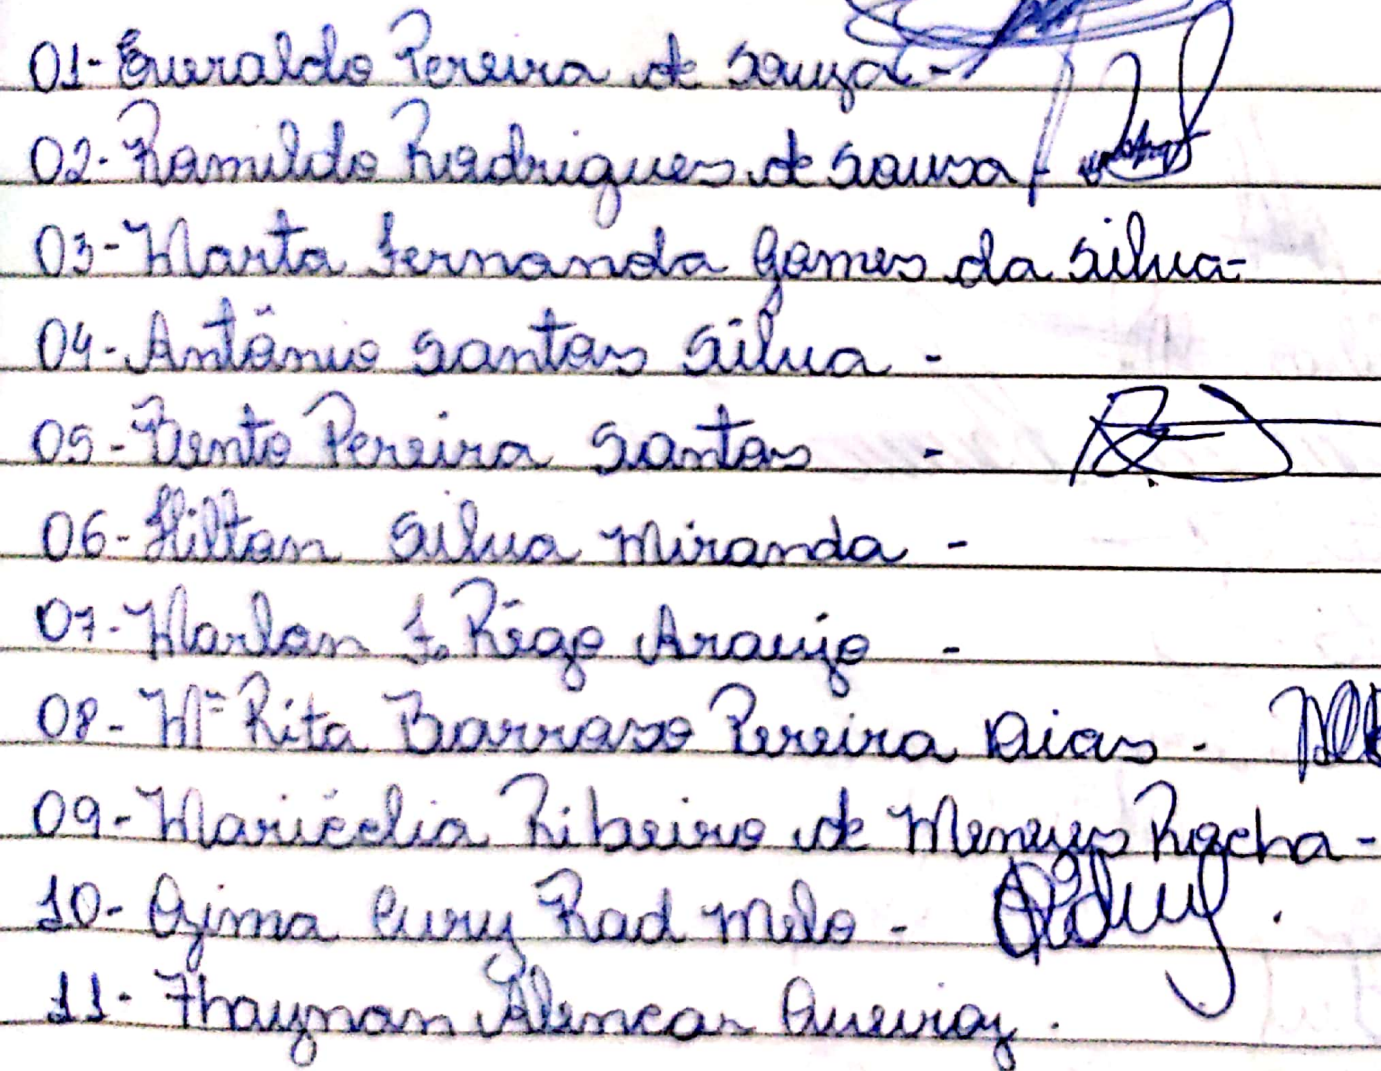 01- Everaldo Pereira de Souza -
02- Ramildo Rodrigues de Sousa
03- Marta Fernanda Gomes da Silva -
04- Antônio Santos Silva -
05- Bento Pereira Santos -
06- Hilton Silva Miranda -
07- Marlon F. Rêgo Araujo -
08- Mª Rita Barroso Pereira Dias -
09- Maricélia Ribeiro de Menezes Rocha -
10- Ozima Cury Rad Melo -
11- Thaynan Alencar Queiroz.